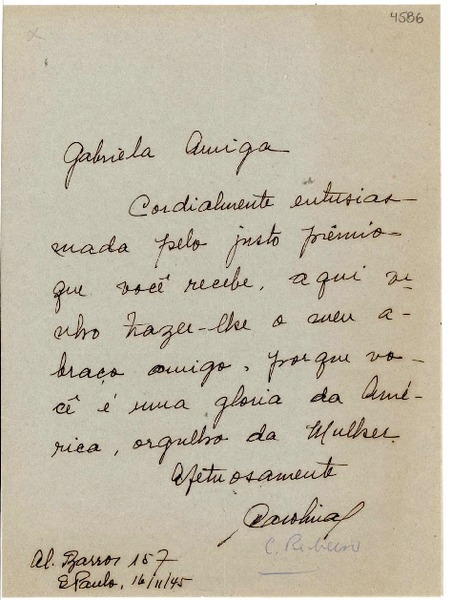 4586
Gabriela Amiga
Cordialmente entusias-
mada pelo justo prêmio
que você recebe, aqui ve-
nho trazer-lhe o meu a-
braço amigo, porque vo-
cê é uma gloria da Amé-
rica, orgulho da Mulher.
Afetuosamente
Carolina
C. Ribeiro
Al. Barros 157
S. Paulo, 16/11/45